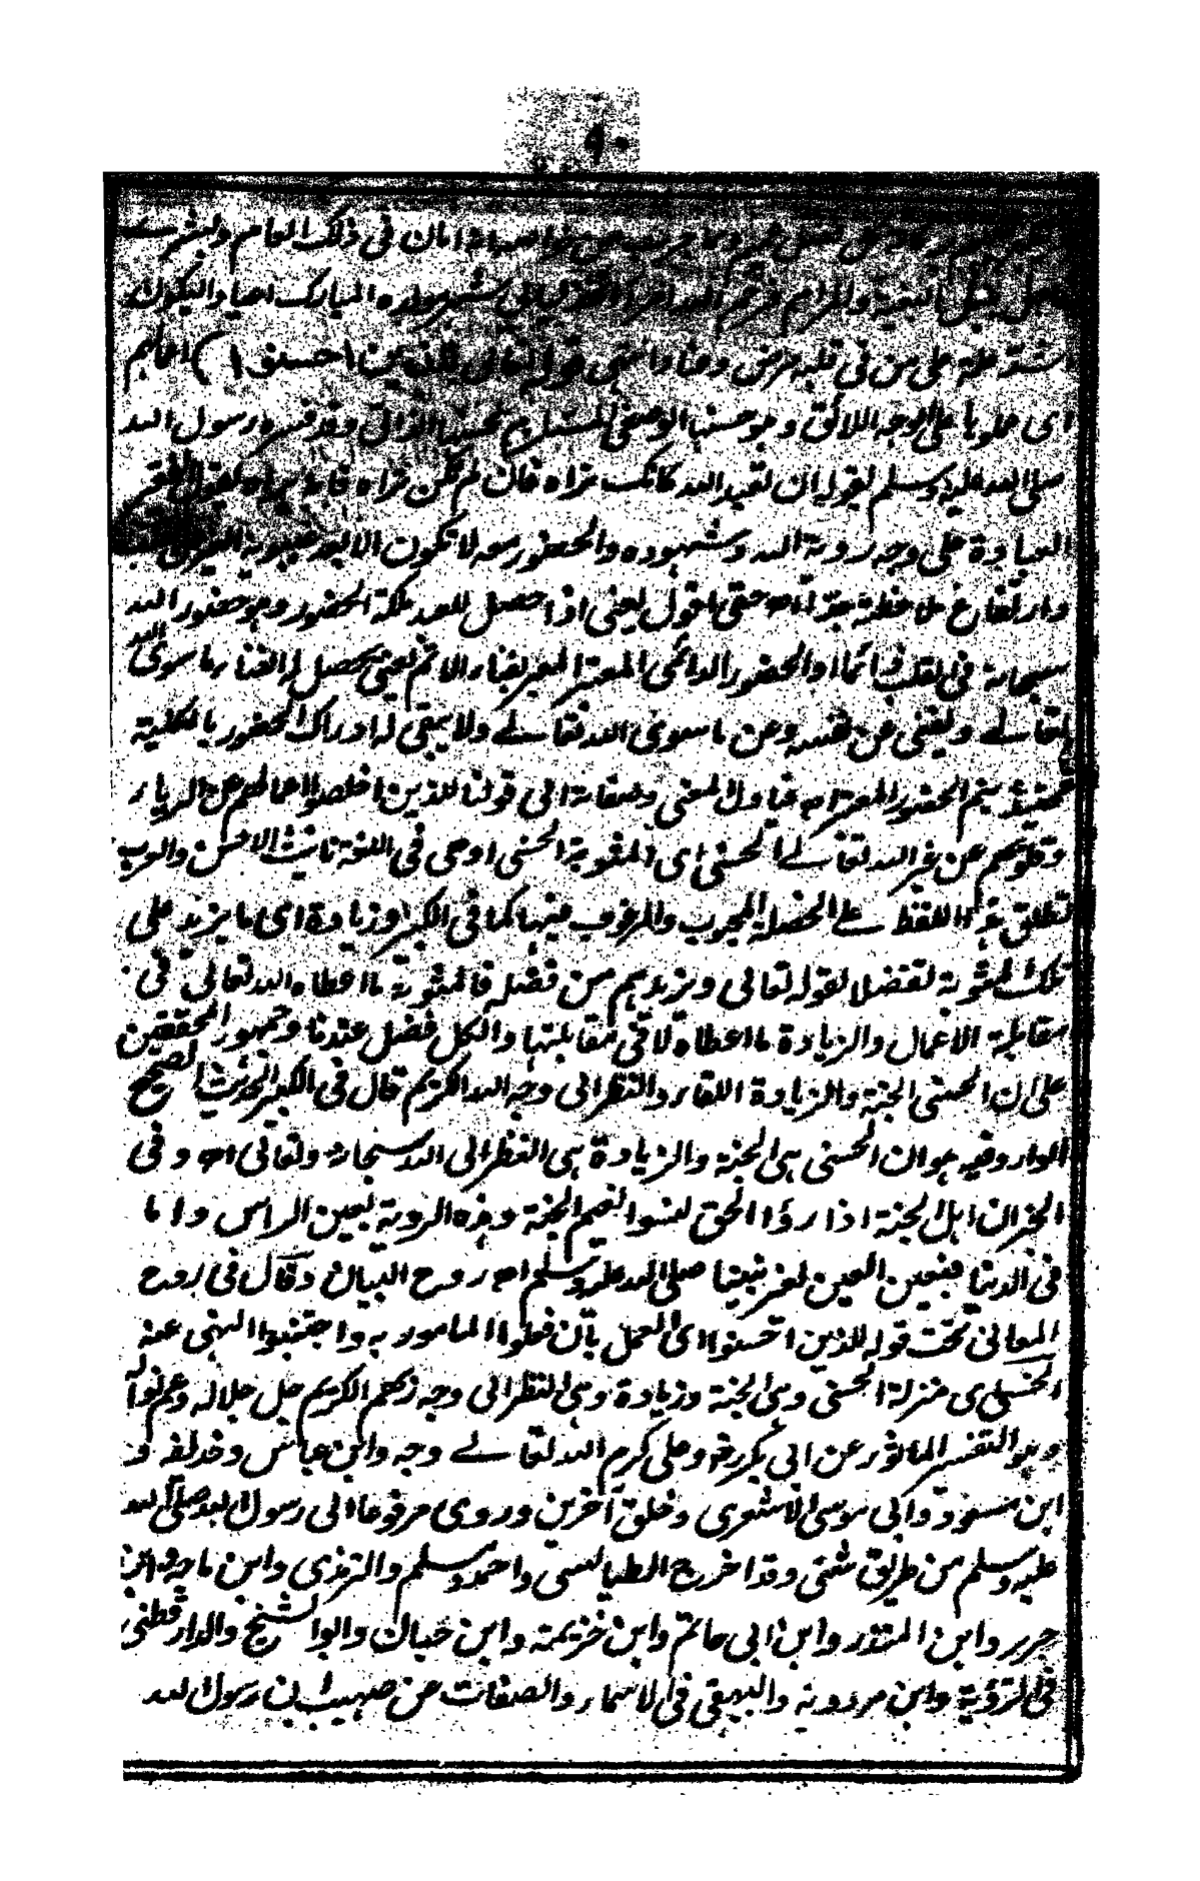 ٩٠
من خواصه انه امان فى ذلك العام وبشرى
بنيل البغية والمرام فرحم الله امرأ اتخذ ليالى شهر مولده المبارك اعيادا ليكون
اشد علة على من فى قلبه مرض وعناد انتهى قوله تعالى للذين احسنوا) اعمالهم
اى عملوها على الوجه اللائق وهو حسنها الوصفى المستلزم لحسنها الذاتى وقد فسره رسول الله
صلى الله عليه وسلم بقوله ان تعبد الله كانك تراه فان لم تكن تراه فانه يراك
العبادة على وجه روية الله وشهوده والحضور معه لا تكون الا بعد غيبوبة الغير
وارتفاع ملاحظة جدا اه حقى اقول يعنى اذا حصل للعبد ملكة الحضور وهو حضور الله
سبحانه فى القلب دائما والحضور الدائمى المعتبر المعبر بفناء الاتم يعنى يحصل له الفناء ما سوى الله
تعالے ويفنى عن نفسه وعن ما سوى الله تعالے ولا يبقى له ادراك الحضور بالكلية
فحينئذ يتم الحضور المعتبر اه فتاول المعنى ونقله الى قولنا للذين اخلصوا اعمالهم عن الرياء
وقلوبهم عن غير الله تعالے الحسنى اى المثوبة الحسنى اوهى فى اللغة تانيث الاحسن والعرب
تطلق هذا اللفظ علے الخصلة المحبوب والمرغوب فيها كما فى الكبير وزيادة اى ما يزيد على
تلك المثوبة تفضلا لقوله تعالى ويزيدهم من فضله فالمثوبة ما اعطاه الله تعالى فى
مقابلة الاعمال والزيادة ما اعطاه لا فى مقابلتها والكل فضل عندنا وجمهور المحققين
على ان الحسنى الجنة والزيادة اللقاء والنظر الى وجه الله الكريم قال فى الكبير الحديث الصحيح
الوارد فيه هو ان الحسنى هى الجنة والزيادة هى النظر الى الله سبحانه وتعالى اه وفى
الخبر ان اهل الجنة اذا رؤا الحق لنسوا نعيم الجنة وهذه الروية بعين الراس واما
فى الدنيا فبعين العين لغير نبينا صلى الله عليه وسلم اه روح البيان وقال فى روح
المعانى تحت قوله للذين احسنوا اى العمل بأن فعلوا المامور به واجتنبوا المنهى عنه
الحسنى اى منزلة الحسنى وهى الجنة وزيادة وهى النظر الى وجه ربهم الكريم جل جلاله وعم نواله
وهو التفسير الماثور عن ابى بكر رض وعلى كرم الله تعالے وجهه وابن عباس وحذيفة و
ابن مسعود وابى موسى الاشعرى وخلق آخرين وروى مرفوعا الى رسول الله صلى الله
عليه وسلم من طريق شتى وقد اخرج الطيالسى واحمد ومسلم والترمذى وابن ماجه وابن
جرير وابن المنذر وابن ابى حاتم وابن خزيمة وابن حبان وابوا الشيخ والدار قطنى
فى الرؤية وابن مردويه والبيهقى فى الاسماء والصفات عن صهيب ان رسول الله